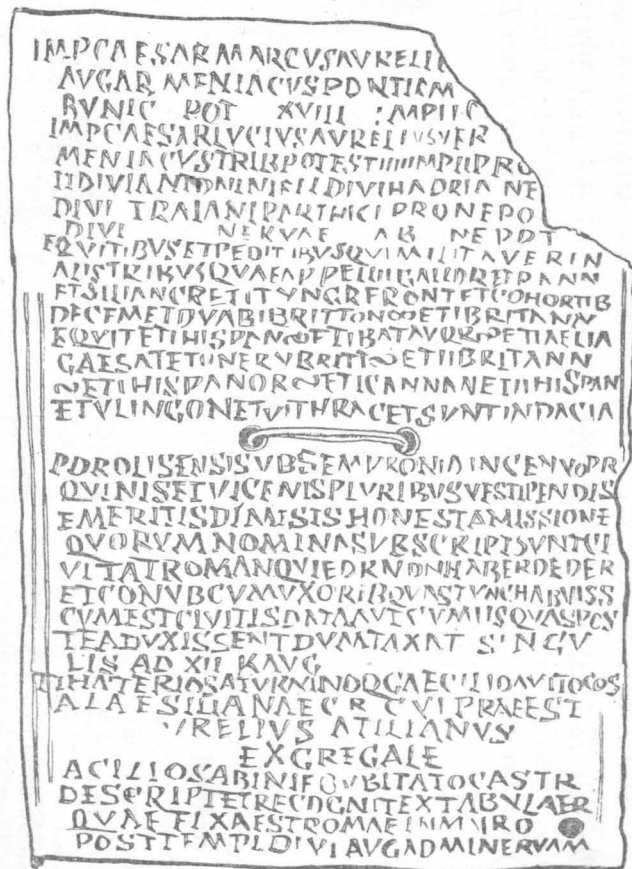 IMPCAESARMARCVSAVRELII
AVGARMENIACVSPONTIFM
BVNIC POT XVIII IMPIIC
IMPCAESARLVCIVSAVRELIVSVER
MENIACVSTRIBPOTESTIIIIIMPIIPRO
IIDIVIANTONINIFILDIVIHADRIANE
DIVI TRAIANIPARTHICI PRONEPO
DIVI NERVAE AB NEPOT
EQVITIBVSETPEDITIBVSQVIMILITAVERIN
ALISTRIBVSQVAEAPPELLIIGALLORETPANN
ETSILIANCRETITVNGRFRONTETCOHORTIB
DECEMETDVABIBRITTON∞ETIBRITANN
EQVITETIHISPAN∞ETIBATAVOR∞ETIAELIA
GAESATETIINERVBRITT∞ETIIBRITANN
∞ETIHISPANOR∞ETICANNANETIIHISPAN
ETVLINGONETVITHRACETSVNTINDACIA
POROLISENSISVBSEMPRONIOINGENVOPR
QVINISETVICENISPLVRIBVSVESTIPENDIS
EMERITISDIMISISHONESTAMISSIONE
QVORVMNOMINASVBSCRIPTSVNTCI
VITATROMANQVIEORNONHABERDEDER
ETCONVBCVMVXORIBQVASTVNCHABVISS
CVMESTCIVITISDATAAVTCVMIISQVASPOS
TEADVXISSENTDVMTAXAT SINGV
LIS AD XII KAVG
TIHATERIOSATVRNINOQCAECILIOAVITOCOS
ALAESILIANAECR CVI PRAEEST
VRELIVS ATILIANVS
EXGREGALE
ACILIOSABINIFOVBITATOCASTR
DESCRIPTETRECOGNITEXTABVLAER
QVAEFIXAESTROMAEINMVRO
POSTTEMPLDIVIAVGADMINERVAM